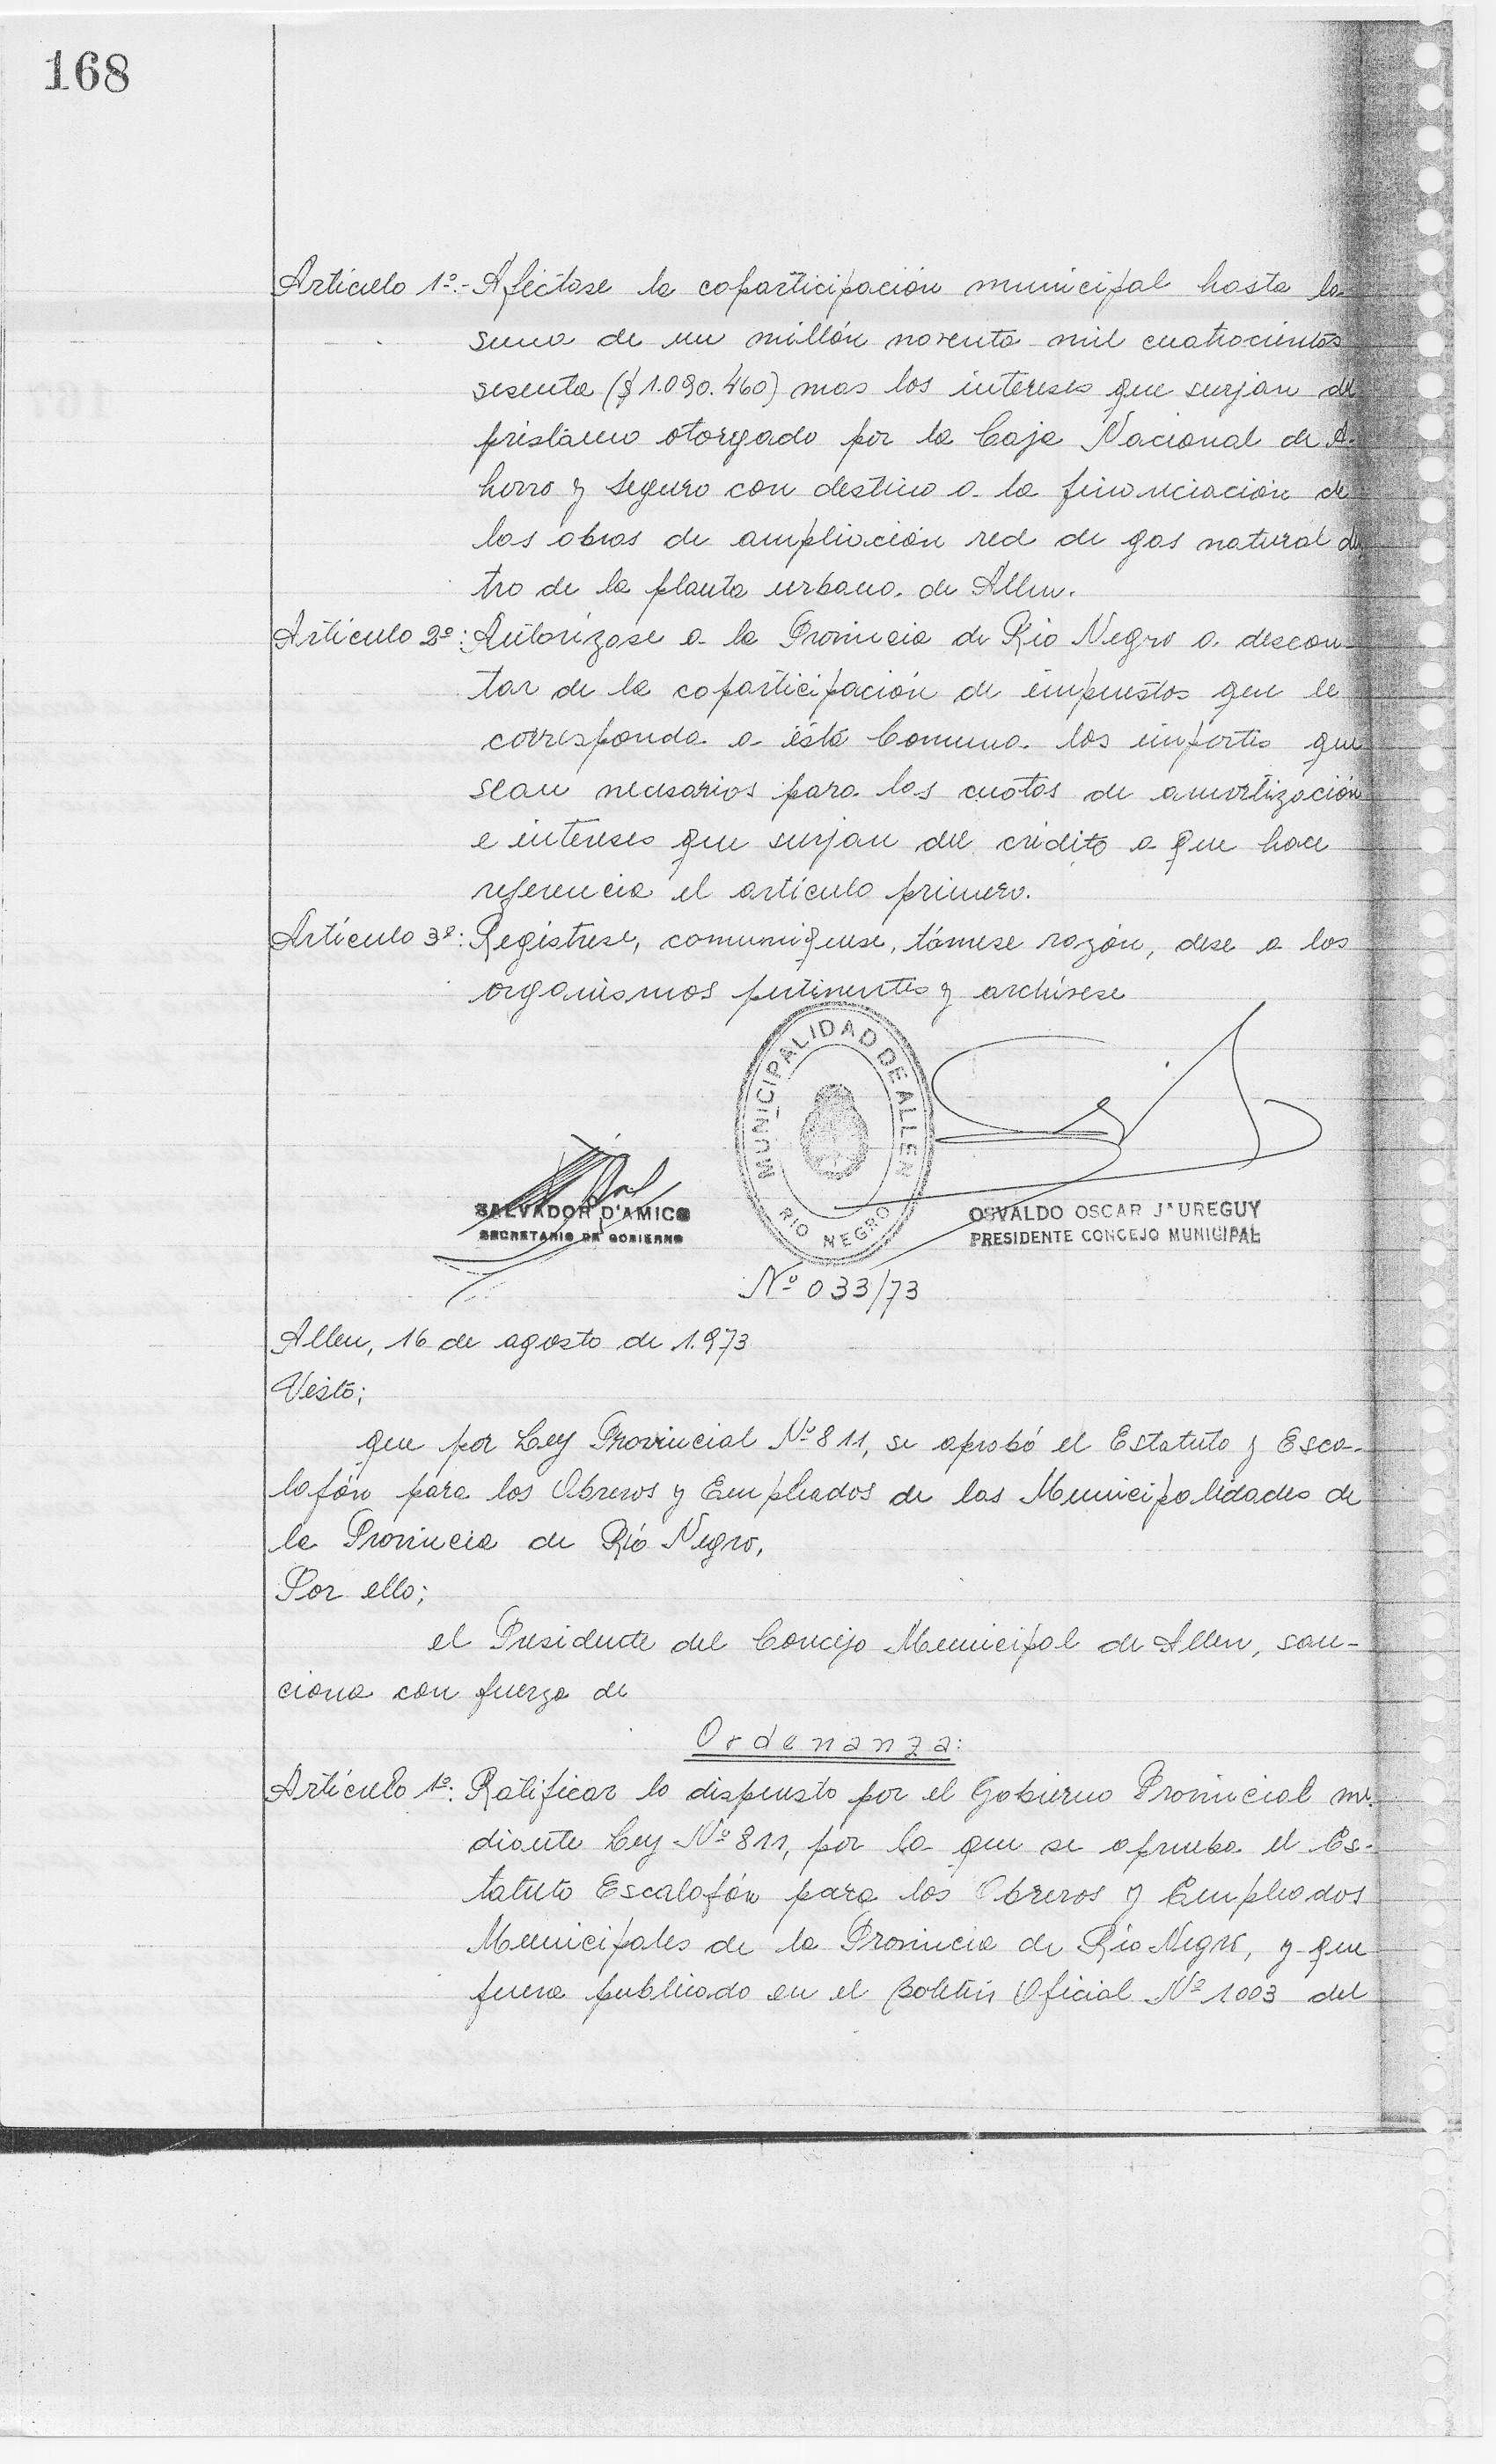 168
Artículo 1º.- Aféctase la coparticipación municipal hasta la
suma de un millón noventa mil cuatrocientos
sesenta ($ 1.090.460) mas los intereses que surjan del
préstamo otorgado por la Caja Nacional de A-
horro y Seguro con destino a la financiación de
las obras de ampliación red de gas natural den
tro de la planta urbana de Allen.
Artículo 2º: Autorízase a la Provincia de Río Negro a descon-
tar de la coparticipación de impuestos que le
corresponda a ésta Comuna los importes que
sean necesarios para las cuotas de amortización
e intereses que surjan del crédito a que hace
referencia el artículo primero.
Artículo 3º: Regístrese, comuníquese, tómese razón, dese a los
organismos pertinentes y archívese
MUNICIPALIDAD DE ALLEN
RIO NEGRO
SALVADOR D'AMICO
SECRETARIO DE GOBIERNO
OSVALDO OSCAR J*UREGUY
PRESIDENTE CONCEJO MUNICIPAL
Nº 033/73
Allen, 16 de agosto de 1.973
Visto;
que por Ley Provincial Nº 811, se aprobó el Estatuto y Esca-
lafón para los Obreros y Empleados de las Municipalidades de
la Provincia de Río Negro,
Por ello;
el Presidente del Concejo Municipal de Allen, san-
ciona con fuerza de
Ordenanza:
Artículo 1º: Ratificar lo dispuesto por el Gobierno Provincial me-
diante Ley Nº 811, por la que se aprueba el Es-
tatuto Escalafón para los Obreros y Empleados
Municipales de la Provincia de Río Negro, y que
fuera publicado en el Boletín Oficial Nº 1003 del